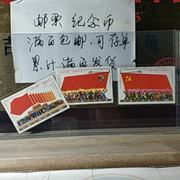 邮票 纪念币
满百包邮.可存单
累计满百发货
藏